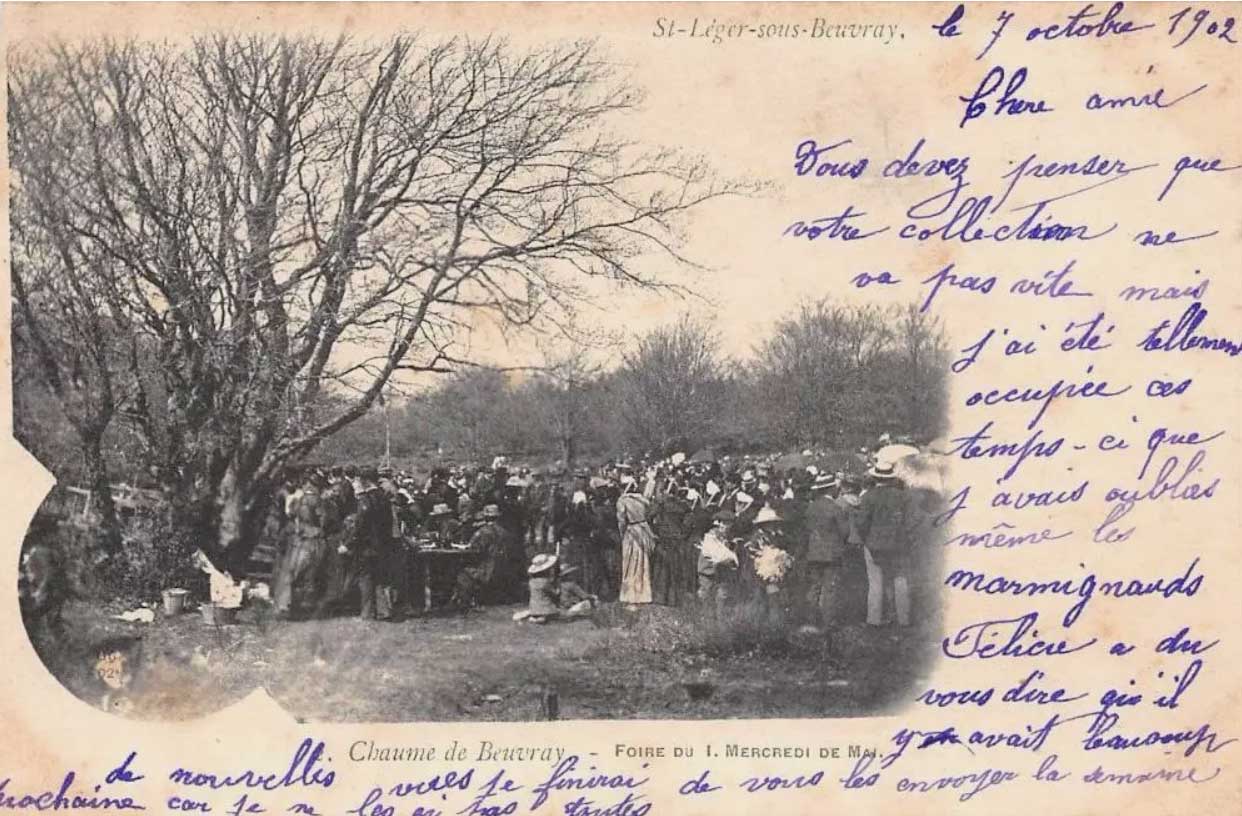 St-Léger-sous-Beuvray, le 7 octobre 1902
Chere amie
Vous devez penser que
votre collection ne
va pas vite mais
j'ai été tellement
occupée ces
temps-ci que
j'avais oubliés
même les
marmignauds
Félicie a du
vous dire qu'il
y en avait beaucoup
Chaume de Beuvray - FOIRE DU 1. MERCREDI DE MAI.
de nouvelles vues je finirai de vous les envoyer la semaine
prochaine car je ne les ai pas toutes